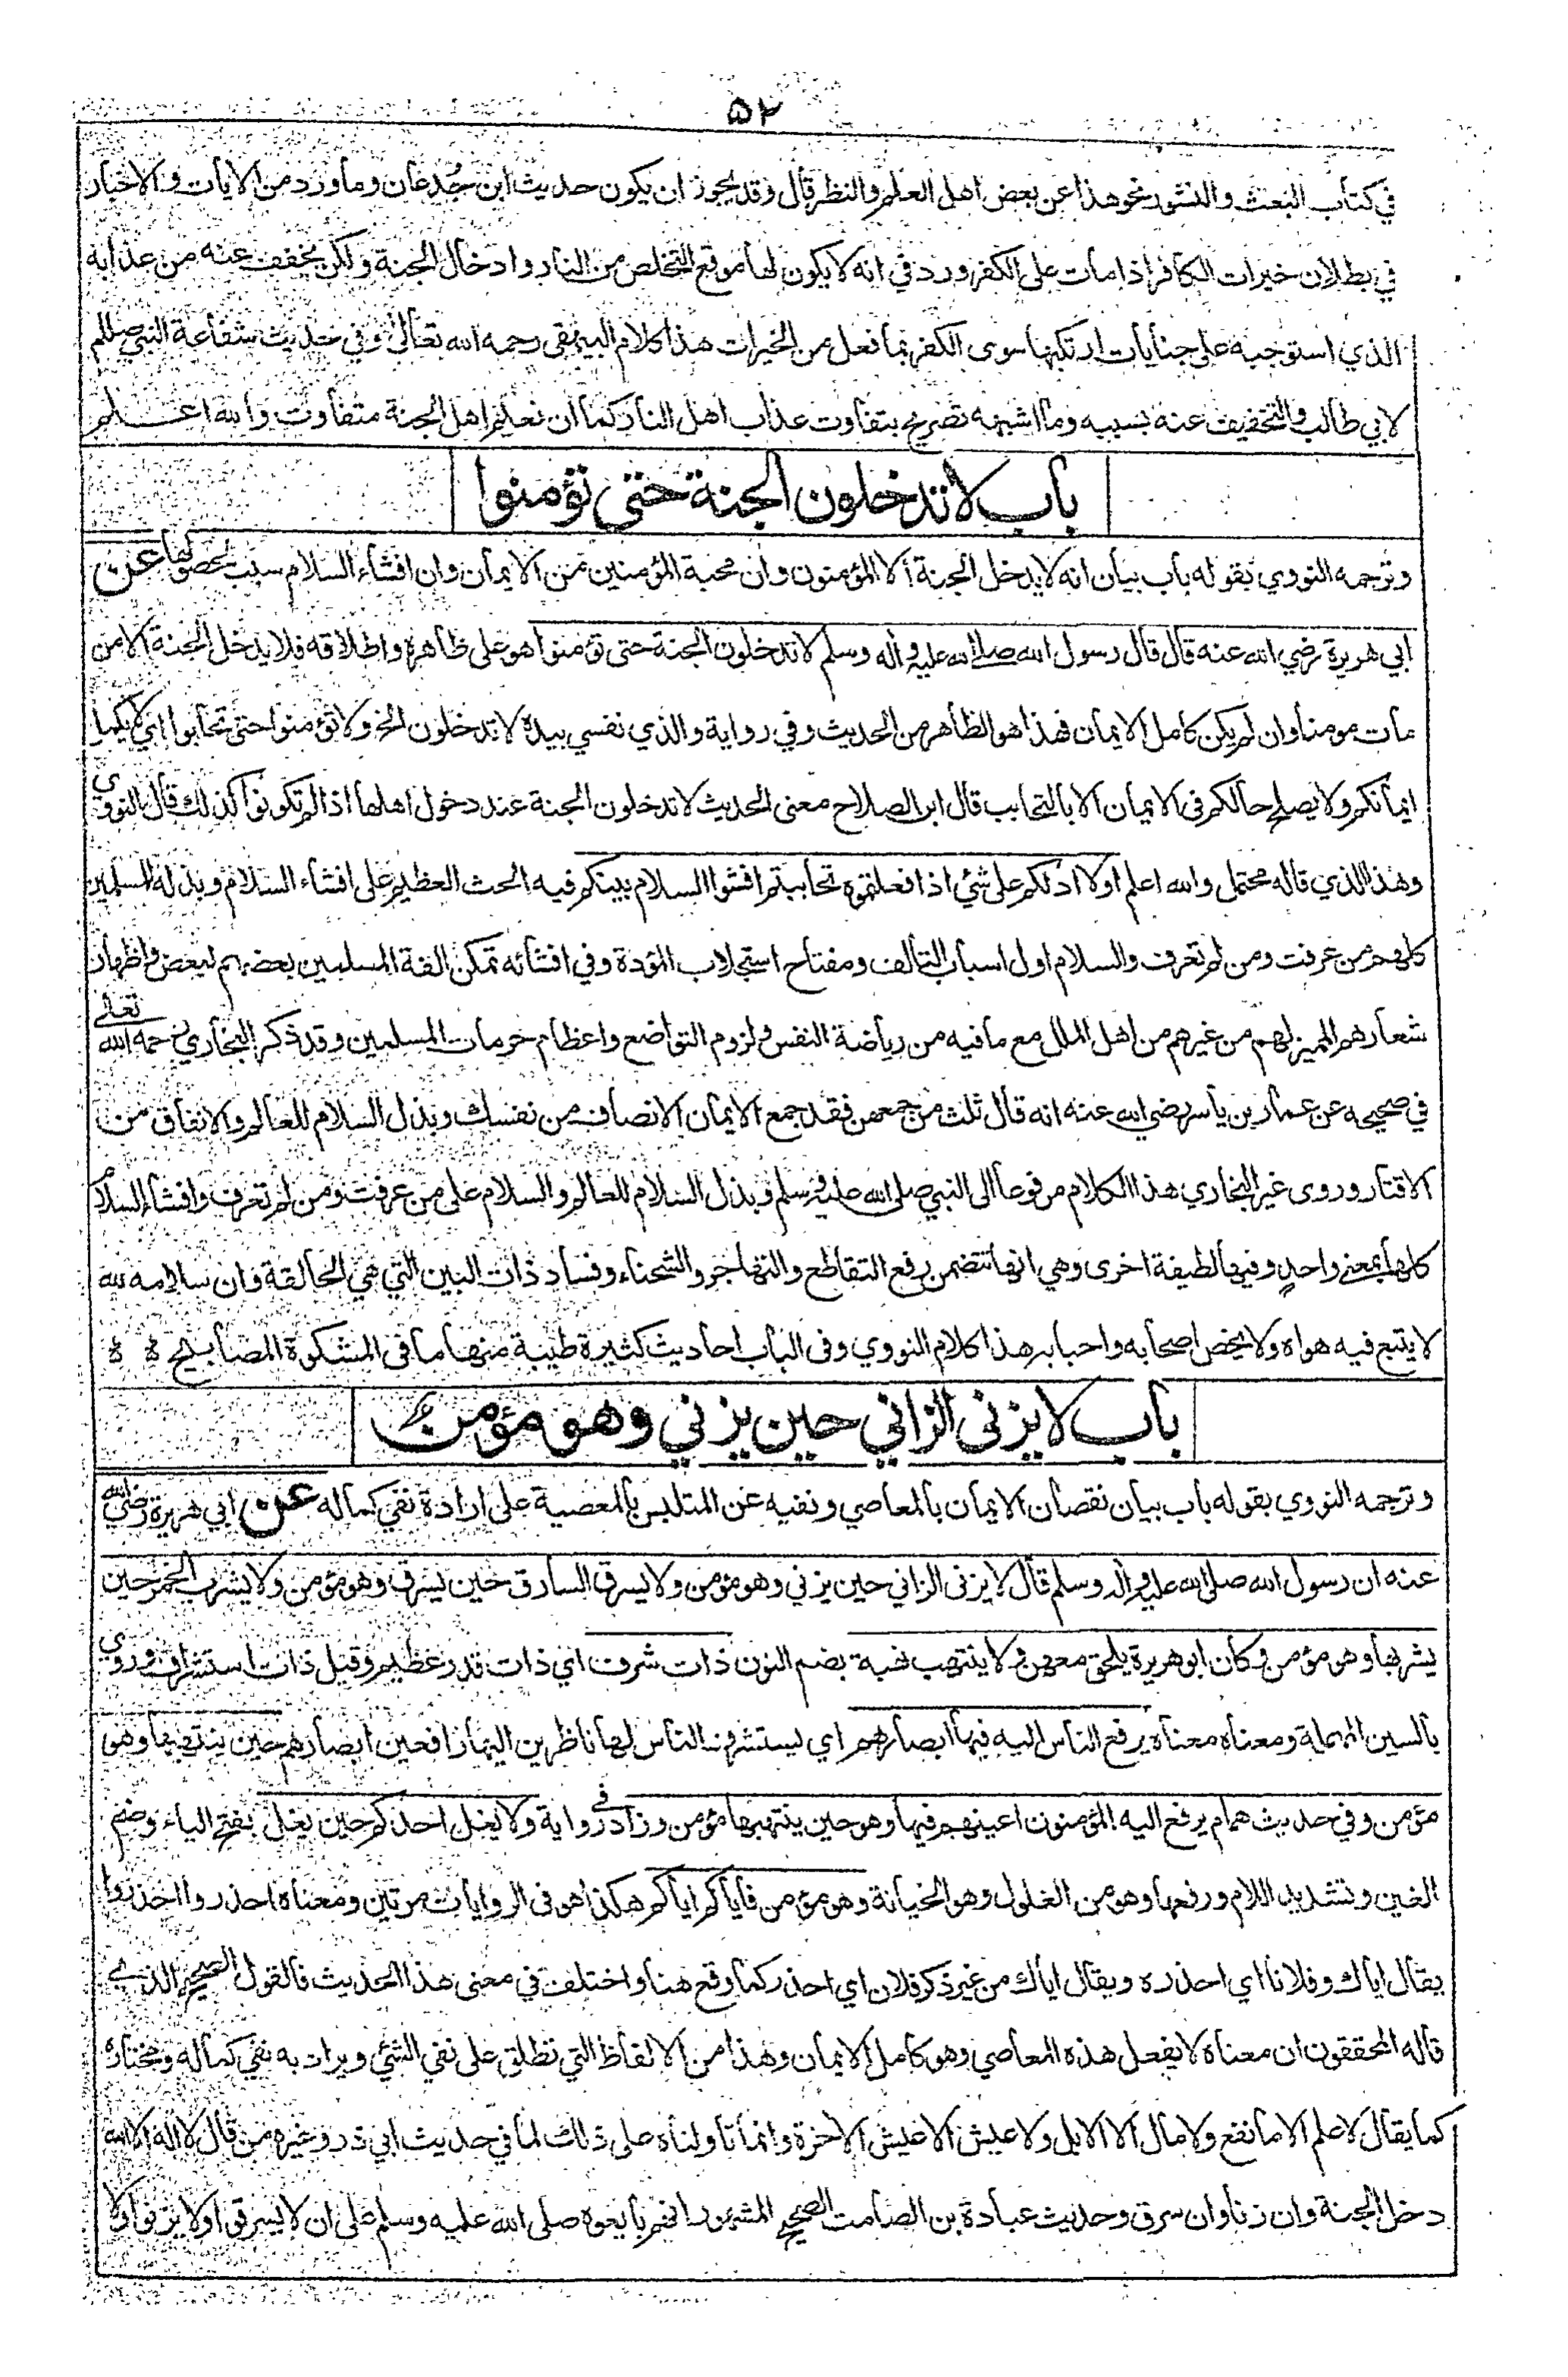 ٥٢
في كتاب البعث والنشور نحو هذا عن بعض اهل العلم والنظر قال وقد يجوز ان يكون حديث ابن جُدعان وما ورد من الايات والاخبار
في بطلان خيرات الكافر اذا مات على الكفر ورد في انه لا يكون لها موقع التخلص من النار وادخال الجنة ولكن يخفف عنه من عذابه
الذي استوجبه على جنايات ارتكبها سوى الكفر بما فعل من الخيرات هذا كلام البيهقى رحمه الله تعالى وفي حديث شفاعة النبي صللم
لابي طالب والتخفيف عنه بسببه وما اشبهه تصريح بتفاوت عذاب اهل النار كما ان نعيم اهل الجنة متفاوت والله اعلم
باب لا تدخلون الجنة حتى تؤمنوا
وترجمه النووي بقوله باب بيان انه لا يدخل الجنة الا المؤمنون وان محبة المؤمنين من الايمان وان افشاء السلام سبب لحصولها عن
ابي هريرة رضي الله عنه قال قال رسول الله صلى الله عليه واله وسلم لا تدخلون الجنة حتى تؤمنوا هو على ظاهره واطلاقه فلا يدخل الجنة الا من
مات مومنا وان لم يكن كامل الايمان فهذا هو الظاهر من الحديث وفي رواية والذي نفسي بيده لا تدخلون الخ ولا تؤمنوا حتى تحابوا اي لا يكمل
ايمانكم ولا يصلح حالكم فى الايمان الا بالتحابب قال ابن الصلاح معنى الحديث لا تدخلون الجنة عند دخول اهلها اذا لم تكونوا كذلك قال النووي
وهذا الذي قاله محتمل والله اعلم اولا ادلكم على شئ اذا فعلتموه تحاببتم افشوا السلام بينكم فيه الحث العظيم على افشاء السلام وبذله للمسلمين
كلهم من عرفت ومن لم تعرف والسلام اول اسباب التألف ومفتاح استجلاب المؤدة وفي افشائه تمكن الفة المسلمين بعضهم لبعض واظهار
شعارهم المميز لهم من غيرهم من اهل الملل مع ما فيه من رياضة النفس ولزوم التواضع واعظام حرمات المسلمين وقد ذكر البخاري رحمه الله تعالى
في صحيحه عن عمار بن ياسر رضي الله عنه انه قال ثلث من جمعهن فقد جمع الايمان الانصاف من نفسك وبذل السلام للعالم والانفاق من
الاقتار وروى غير البخاري هذا الكلام مرفوعا الى النبي صلى الله عليه وسلم وبذل السلام للعالم والسلام على من عرفت ومن لم تعرف وافشاء السلام
كلها بمعنى واحدٍ وفيها لطيفة اخرى وهي انها تتضمن رفع التقاطع والتهاجر والشحناء وفساد ذات البين التي هي الحالقة وان سلامه لله
لا يتبع فيه هواه ولا يخص اصحابه واحبابه هذا كلام النووي وفى الباب احاديث كثيرة طيبة منها ما فى المشكوة المصابيح
باب لا يزنى الزاني حين يزني وهو مؤمن
وترجمه النووي بقوله باب بيان نقصان الايمان بالمعاصي ونفيه عن المتلبس بالمعصية على ارادة نفي كماله عن ابي هريرة رضي الله
عنه ان رسول الله صلى الله عليه واله وسلم قال لا يزنى الزاني حين يزني وهو مؤمن ولا يسرق السارق حين يسرق وهو مؤمن ولا يشرب الخمر حين
يشربها وهو مؤمن وكان ابو هريرة يلحق معهن ولا ينتهب نهبة بضم النون ذات شرف اي ذات قدر عظيم وقيل ذات استشراف وروي
بالسين المهملة ومعناه معناه يرفع الناس اليه فيها ابصارهم اي يستشرف الناس لها ناظرين اليها رافعين ابصارهم حين ينتهبها وهو
مؤمن وفي حديث همام يرفع اليه المؤمنون اعينهم فيها وهو حين ينتهبها مؤمن وزاد في رواية ولا يغل احدكم حين يغل بفتح الياء وضم
الغين وتشديد اللام ورفعها وهو من الغلول وهو الخيانة وهو مؤمن فاياكم اياكم هكذا هو فى الروايات مرتين ومعناه احذروا احذروا
يقال اياك وفلانا اي احذره ويقال اياك من غير ذكر فلان اي احذر كما وقع هنا واختلف في معنى هذا الحديث فالقول الصحيح الذي
قاله المحققون ان معناه لا يفعل هذه المعاصي وهو كامل الايمان وهذا من الالفاظ التي تطلق على نفي الشئي ويراد به نفي كماله ومختاره
كما يقال لا علم الا ما نفع ولا مال الا الابل ولا عيش الا عيش الاخرة وانما تاولناه على ذلك لما في حديث ابي ذر وغيره من قال لا اله الا الله
دخل الجنة وان زنا وان سرق وحديث عبادة بن الصامت الصحيح المشهور انهم بايعوه صلى الله عليه وسلم على ان لا يسرقوا ولا يزنوا ولا